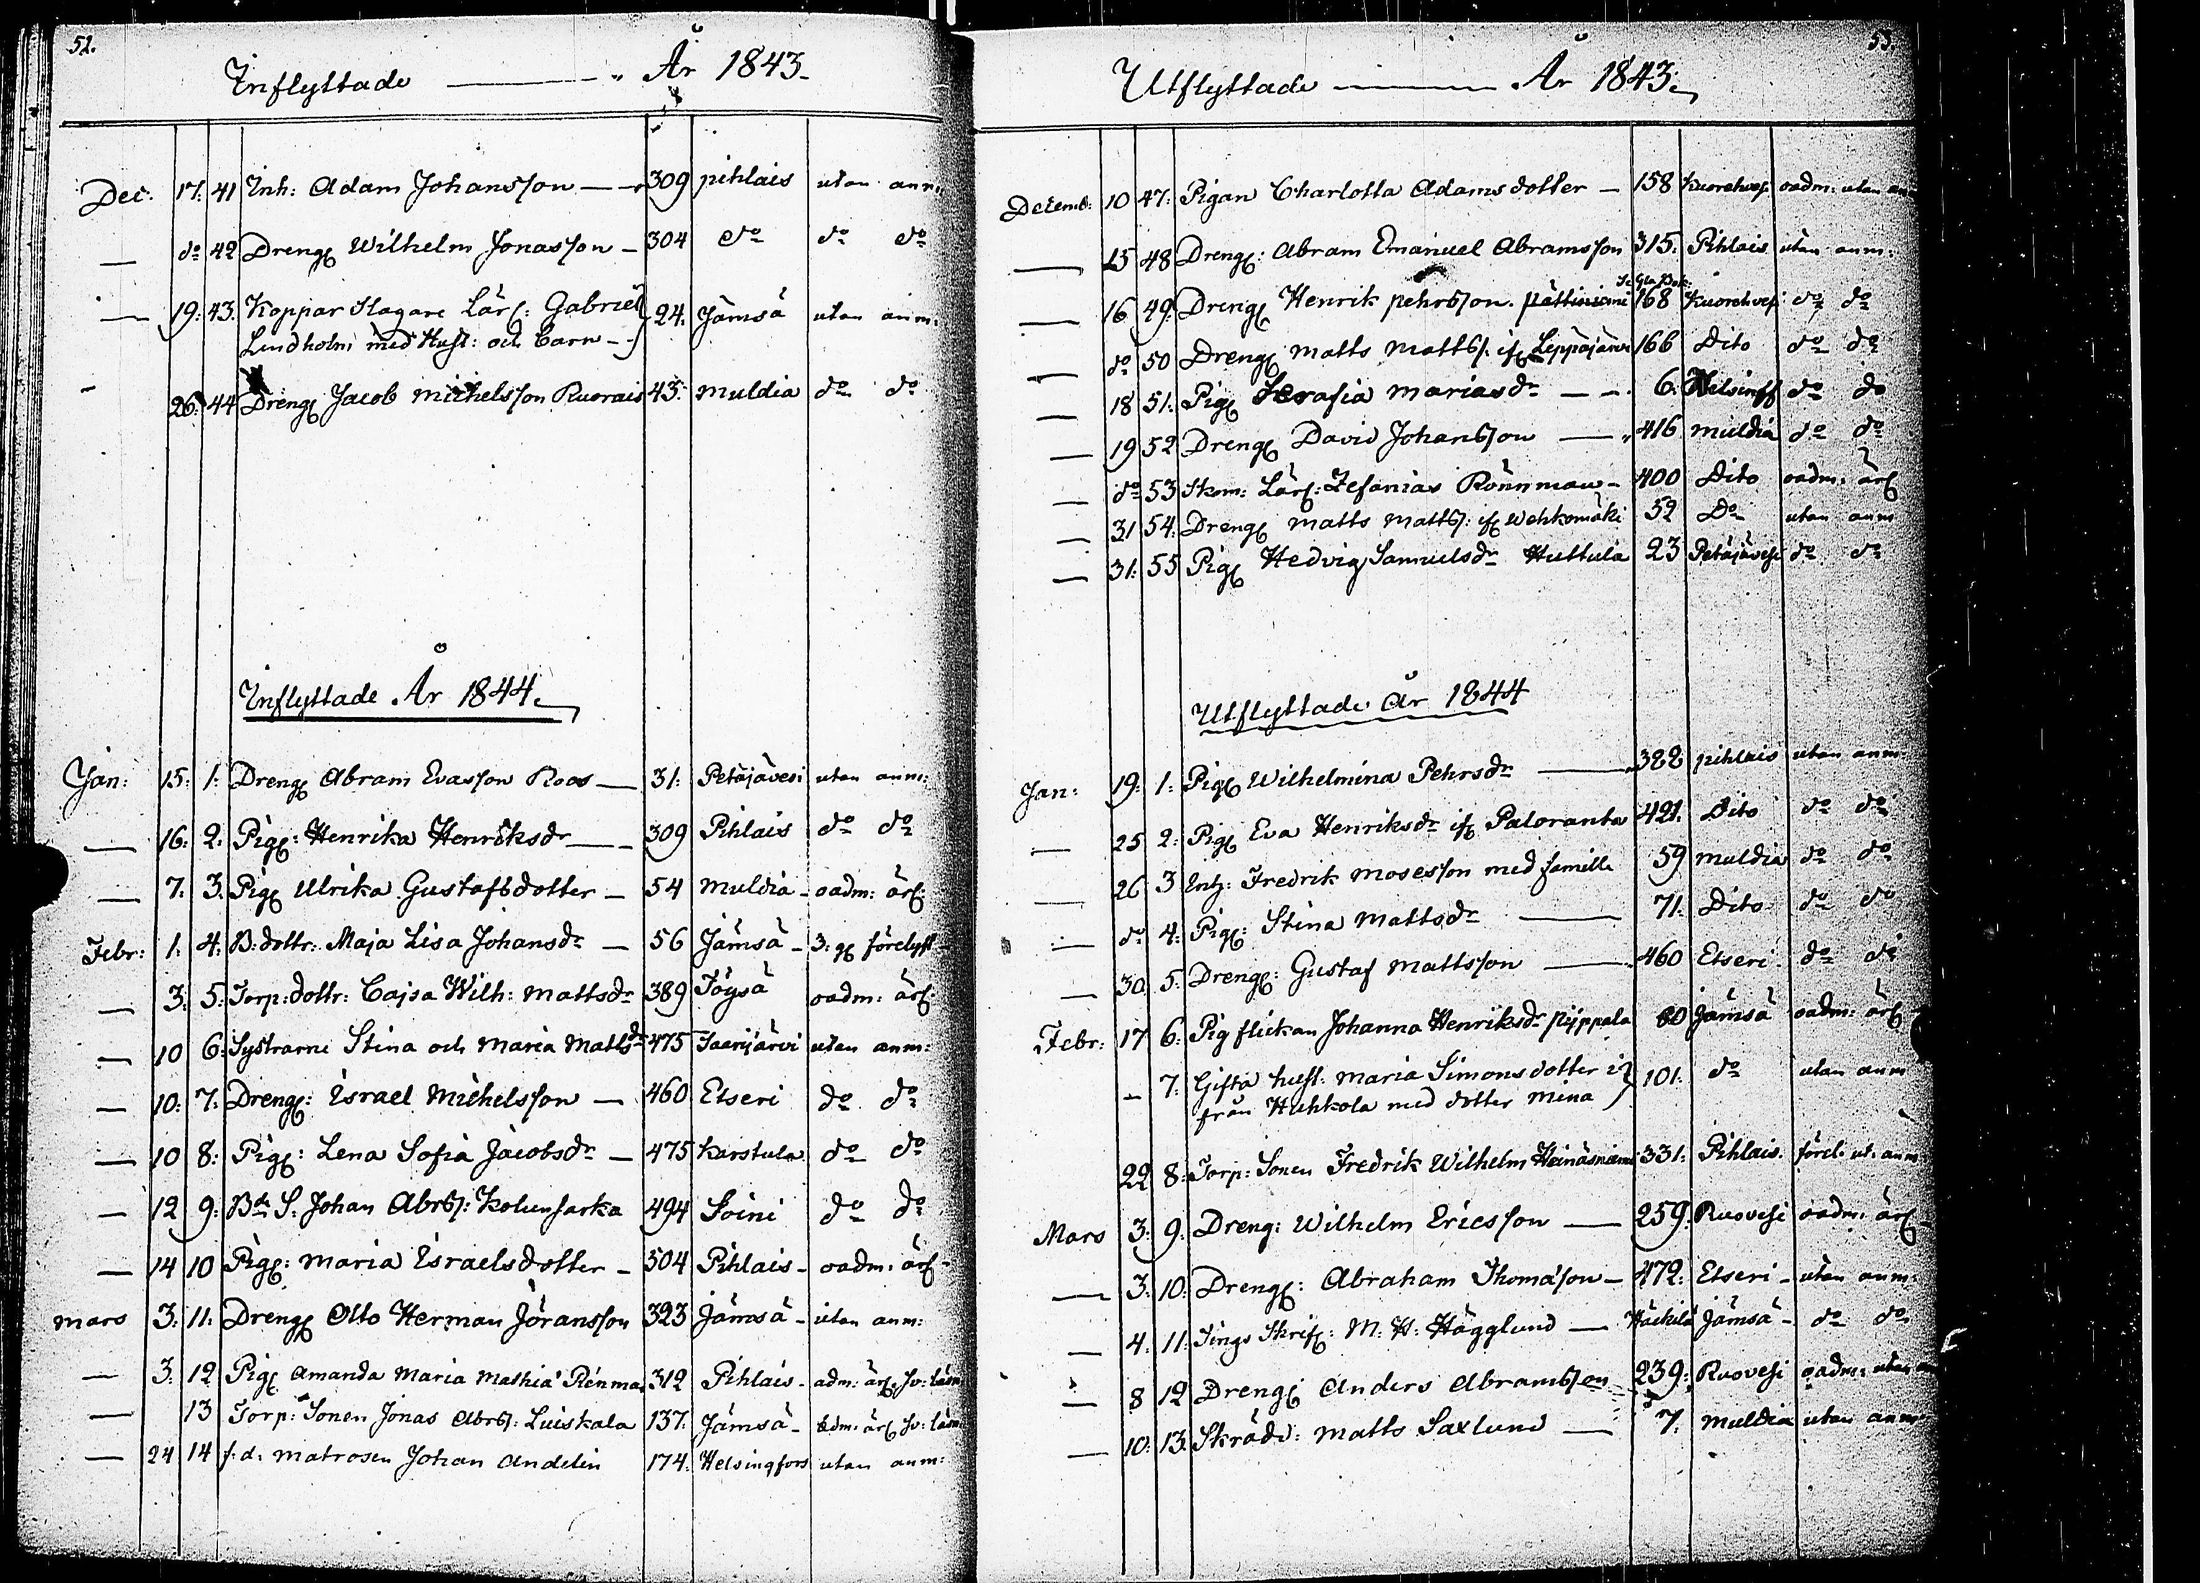 52.
Inflyttade ———„ År 1843.
Dec: 17: 41 Inh: Adam Johansson —— 309 pihlais utan anm:
— do 42 Drengg Wilhelm Jonasson — 304 do do do
— 19: 43. Koppar Slagare Lärl: Gabriel 24. Jämsä utan anm:
Lindholm med Hust: och barn —
- 26: 44 Drengg Jacob Michelsson Ruorais 43: Muldia do do
Inflyttade År 1844.
Jan: 15: 1: Drengg Abram Evasson Roos — 31: Petäjävesi utan anm:
— 16. 2. Pigg: Henrika Henriksdr —— 309 Pihlais do do
— 7. 3. Pigg Ulrika Gustafsdotter — 54 Muldia - oadm: ärl:
Febr: 1. 4. B:dottr: Maja Lisa Johansdr — 56 Jämsä - 3: gg förelyst
— 3: 5: Torp:dottr: Cajsa Wilh: Mattsdr 389 Töysä oadm: ärl:
— 10 6: Systrarne Stina och Maria Mattsdr 475 Saarijärvi utan anm:
— 10: 7: Drengg: Israel Michelsson — 460 Etseri do do
— 10 8: Pigg: Lena Sofia Jacobsdr — 475 Karstula do do
— 12 9: Bde S: Johan Abrss: Kolunsarka 494 Soini do do
— 14 10 Pigg: Maria Israelsdotter — 304 Pihlais - oadm: ärl -
Mars 3: 11: Drengg Otto Herman Jöransson 323 Jämsä - utan anm:
— 3: 12 Pigg Amanda Maria Mathiä Rénman 312 Pihlais - adm: ärl, sv: läsn
— 13 Torp: Sonen Jonas Abrss: Luiskala 137: Jämsä - adm: ärl sv: läsn
— 24 14 f:d: Matrosen Johan Andelin 174: Helsingfors utan anm:
53.
Utflyttade ——— År 1843.
Decemb: 10 47: Pigan Charlotta Adamsdotter — 158 Kuorehvesi oadm: utan an
— 15 48 Drengg: Abram Emanuel Abramsson 315: Pihlais utan anm:
— 16 49: Drengg Henrik Pehrsson Pättiniemi 168 Kuorehvesi do do
— do 50 Drengg Matts Mattss: ifg Leppäjärvi 166 Dito do do
— 18 51: Pigg Serafia Mariasdr —— 6: Helsinff do do
— 19 52 Drengg David Johansson —— 416 Muldia do do
— do 53 Skom: Lärl: Zefanias Rönnman — 400 Dito oadm: ärl
— 31 54: Drengg Matts Mattss: ifg Wehkomäki 52 Do utan anm
— 31: 55 Pigg Hedvig Samuelsdr Huttula 23 Petäjävesi do do
Utflyttade År 1844
Jan: 19: 1: Pigg Wilhelmina Pehrsdr —— 322 pihlais utan anm
— 25 2: Pigg Eva Henriksdr ifg Paloranta 421. Dito do do
— 26 3 Inh: Fredrik Mosesson med familie 59 Muldia do do
— do 4: Pigg: Stina Mattsdr —— 71: Dito do do
— 30. 5. Drengg: Gustaf Mattsson —— 460 Etseri do do
Febr: 17 6: Pig flickan Johanna Henriksdr Pijppala 60 Jämsä oadm: ärl
— 7: Gifta hust: Maria Simonsdotter i 101: do utan anm
från Huhkola med dotter Mina
22 8: Torp: Sonen Fredrik Wilhelm Heinäsniemi 331: Pihlais. förel: ut: anm
Mars 3. 9: Dreng: Wilhelm Ericsson —— 259: Ruovesi oadm: ärl -
— 3. 10: Drengg: Abraham Thomasson — 472: Etseri - utan anm:
— 4. 11: Tings Skrif: M: H: Hägglund — Häckilä Jämsä - do do
— 8 12 Drengg Anders Abramsson 239: Ruovesi oadm: utan an
— 10: 13: Skräd: Matts Saxlund —— 7: Muldia utan anm: